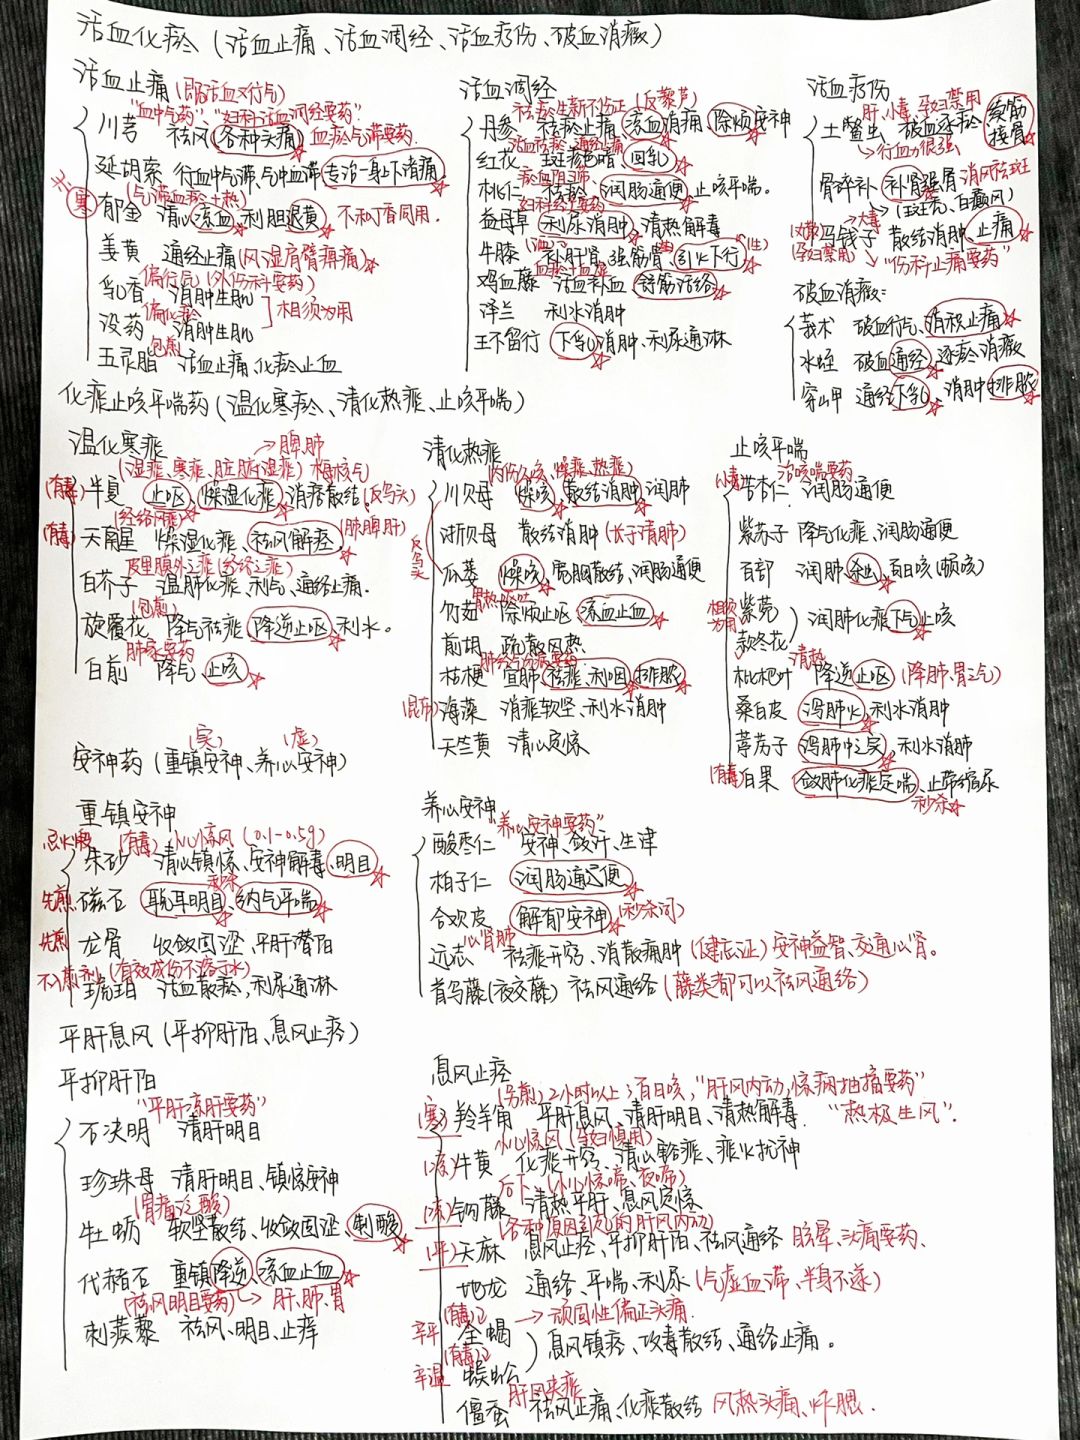 活血化瘀（活血止痛、活血调经、活血疗伤、破血消癥）
活血止痛（既活血又行气）
"血中气药"、"妇科活血调经要药"
川芎 祛风 各种头痛 血瘀气滞要药.
延胡索 行血中气滞,气中血滞 专治一身上下诸痛
（气滞血瘀+热）
寒 郁金 清心凉血 利胆退黄 不和丁香同用.
姜黄 通经止痛（风湿肩臂痹痛）
偏行气（外伤科要药）
乳香 消肿生肌
偏化瘀 相须为用
没药 消肿生肌
包煎
五灵脂 活血止痛、化瘀止血
活血调经
祛瘀生新不伤正（反藜芦）
丹参 祛瘀止痛、凉血消痈、除烦安神
活血祛瘀、通经止痛
红花 斑疹色暗、回乳
瘀血阻滞
桃仁 祛瘀、润肠通便、止咳平喘。
妇科经产要药
益母草 利尿消肿、清热解毒
牛膝 补肝肾、强筋骨 引火下行
血瘀+血虚
鸡血藤 活血补血 舒筋活络
泽兰 利水消肿
王不留行 下乳 消肿、利尿通淋
活血疗伤
肝、小毒、孕妇禁用
土鳖虫 破血逐瘀 续筋接骨
→行血力很强
骨碎补 补肾强骨 消风祛斑
→（斑秃、白癜风）
→大毒
马钱子 散结消肿 止痛
（孕妇禁用） "伤科止痛要药"
破血消癥:
莪术 破血行气、消积止痛
水蛭 破血通经 逐瘀消癥
穿山甲 通经下乳、消肿排脓
化痰止咳平喘药（温化寒痰、清化热痰、止咳平喘）
温化寒痰 →脾肺
（湿痰、寒痰、脏腑湿痰）梅核气
（有毒）半夏 止呕、燥湿化痰、消痞散结（反乌头）
（经络风痰）
（有毒）天南星 燥湿化痰、祛风解痉（肺脾肝）
皮里膜外之痰（经络之痰）
白芥子 温肺化痰、利气、通络止痛.
（包煎）
旋覆花 降气祛痰、降逆止呕、利水。
肺家要药
白前 降气、止咳
清化热痰
内伤久咳、燥痰、热痰）
川贝母 燥咳、散结消肿 润肺
浙贝母 散结消肿（长于清肺）
反乌头
瓜蒌 燥咳、宽胸散结、润肠通便
竹茹 除烦止呕、凉血止血
前胡 疏散风热
桔梗 宣肺 祛痰、利咽 排脓
（昆布）海藻 消痰软坚、利水消肿
天竺黄 清心定惊
止咳平喘
治咳喘要药
小毒 苦杏仁 润肠通便
紫苏子 降气化痰、润肠通便
百部 润肺、杀虫、百日咳（顿咳）
相须为用 紫菀
款冬花 润肺化痰 下气止咳
清热
枇杷叶 降逆止呕（降肺、胃之气）
桑白皮 泻肺火、利水消肿
葶苈子 泻肺中之实、利水消肿
（有毒）白果 敛肺化痰定喘、止带缩尿
秒杀
（实）（虚）
安神药（重镇安神、养心安神）
重镇安神
忌火煅（有毒）小儿惊风（0.1-0.5g）
朱砂 清心镇惊、安神解毒、明目
先煎 磁石 聪耳明目、纳气平喘
先煎 龙骨 收敛固涩、平肝潜阳
不入煎剂（有效成份不溶于水）
琥珀 活血散瘀,利尿通淋
养心安神
"养心安神要药"
酸枣仁 安神、敛汗、生津
柏子仁 润肠通便
合欢皮 解郁安神（秒杀词）
心肾肺
远志 祛痰开窍、消散痈肿（健忘证）安神益智、交通心肾。
首乌藤（夜交藤）祛风通络（藤类都可以祛风通络）
平肝息风（平抑肝阳、息风止痉）
平抑肝阳
"平肝凉肝要药"
石决明 清肝明目
珍珠母 清肝明目、镇惊安神
（胃痛泛酸）
牡蛎 软坚散结、收敛固涩、制酸
代赭石 重镇降逆、凉血止血
（祛风明目要药）→肝、肺、胃
刺蒺藜 祛风、明目、止痒
息风止痉
（另煎）2小时以上；百日咳,"肝风内动,惊痫抽搐要药"
（寒）羚羊角 平肝息风、清肝明目、清热解毒. "热极生风".
小儿惊风（孕妇慎用）
（凉）牛黄 化痰开窍、清心豁痰、痰火扰神
后下、（小儿惊啼、夜啼）
（凉）钩藤 清热平肝、息风定惊
（各种原因引起的肝风内动）
（平）天麻 息风止痉、平抑肝阳、祛风通络 眩晕、头痛要药、
地龙 通络、平喘、利尿（气虚血滞、半身不遂）
（有毒） →顽固性偏正头痛.
辛平 全蝎
（有毒） 息风镇痉、攻毒散结、通络止痛。
辛温 蜈蚣
肝风夹痰
僵蚕 祛风止痛、化痰散结 风热头痛、痄腮.